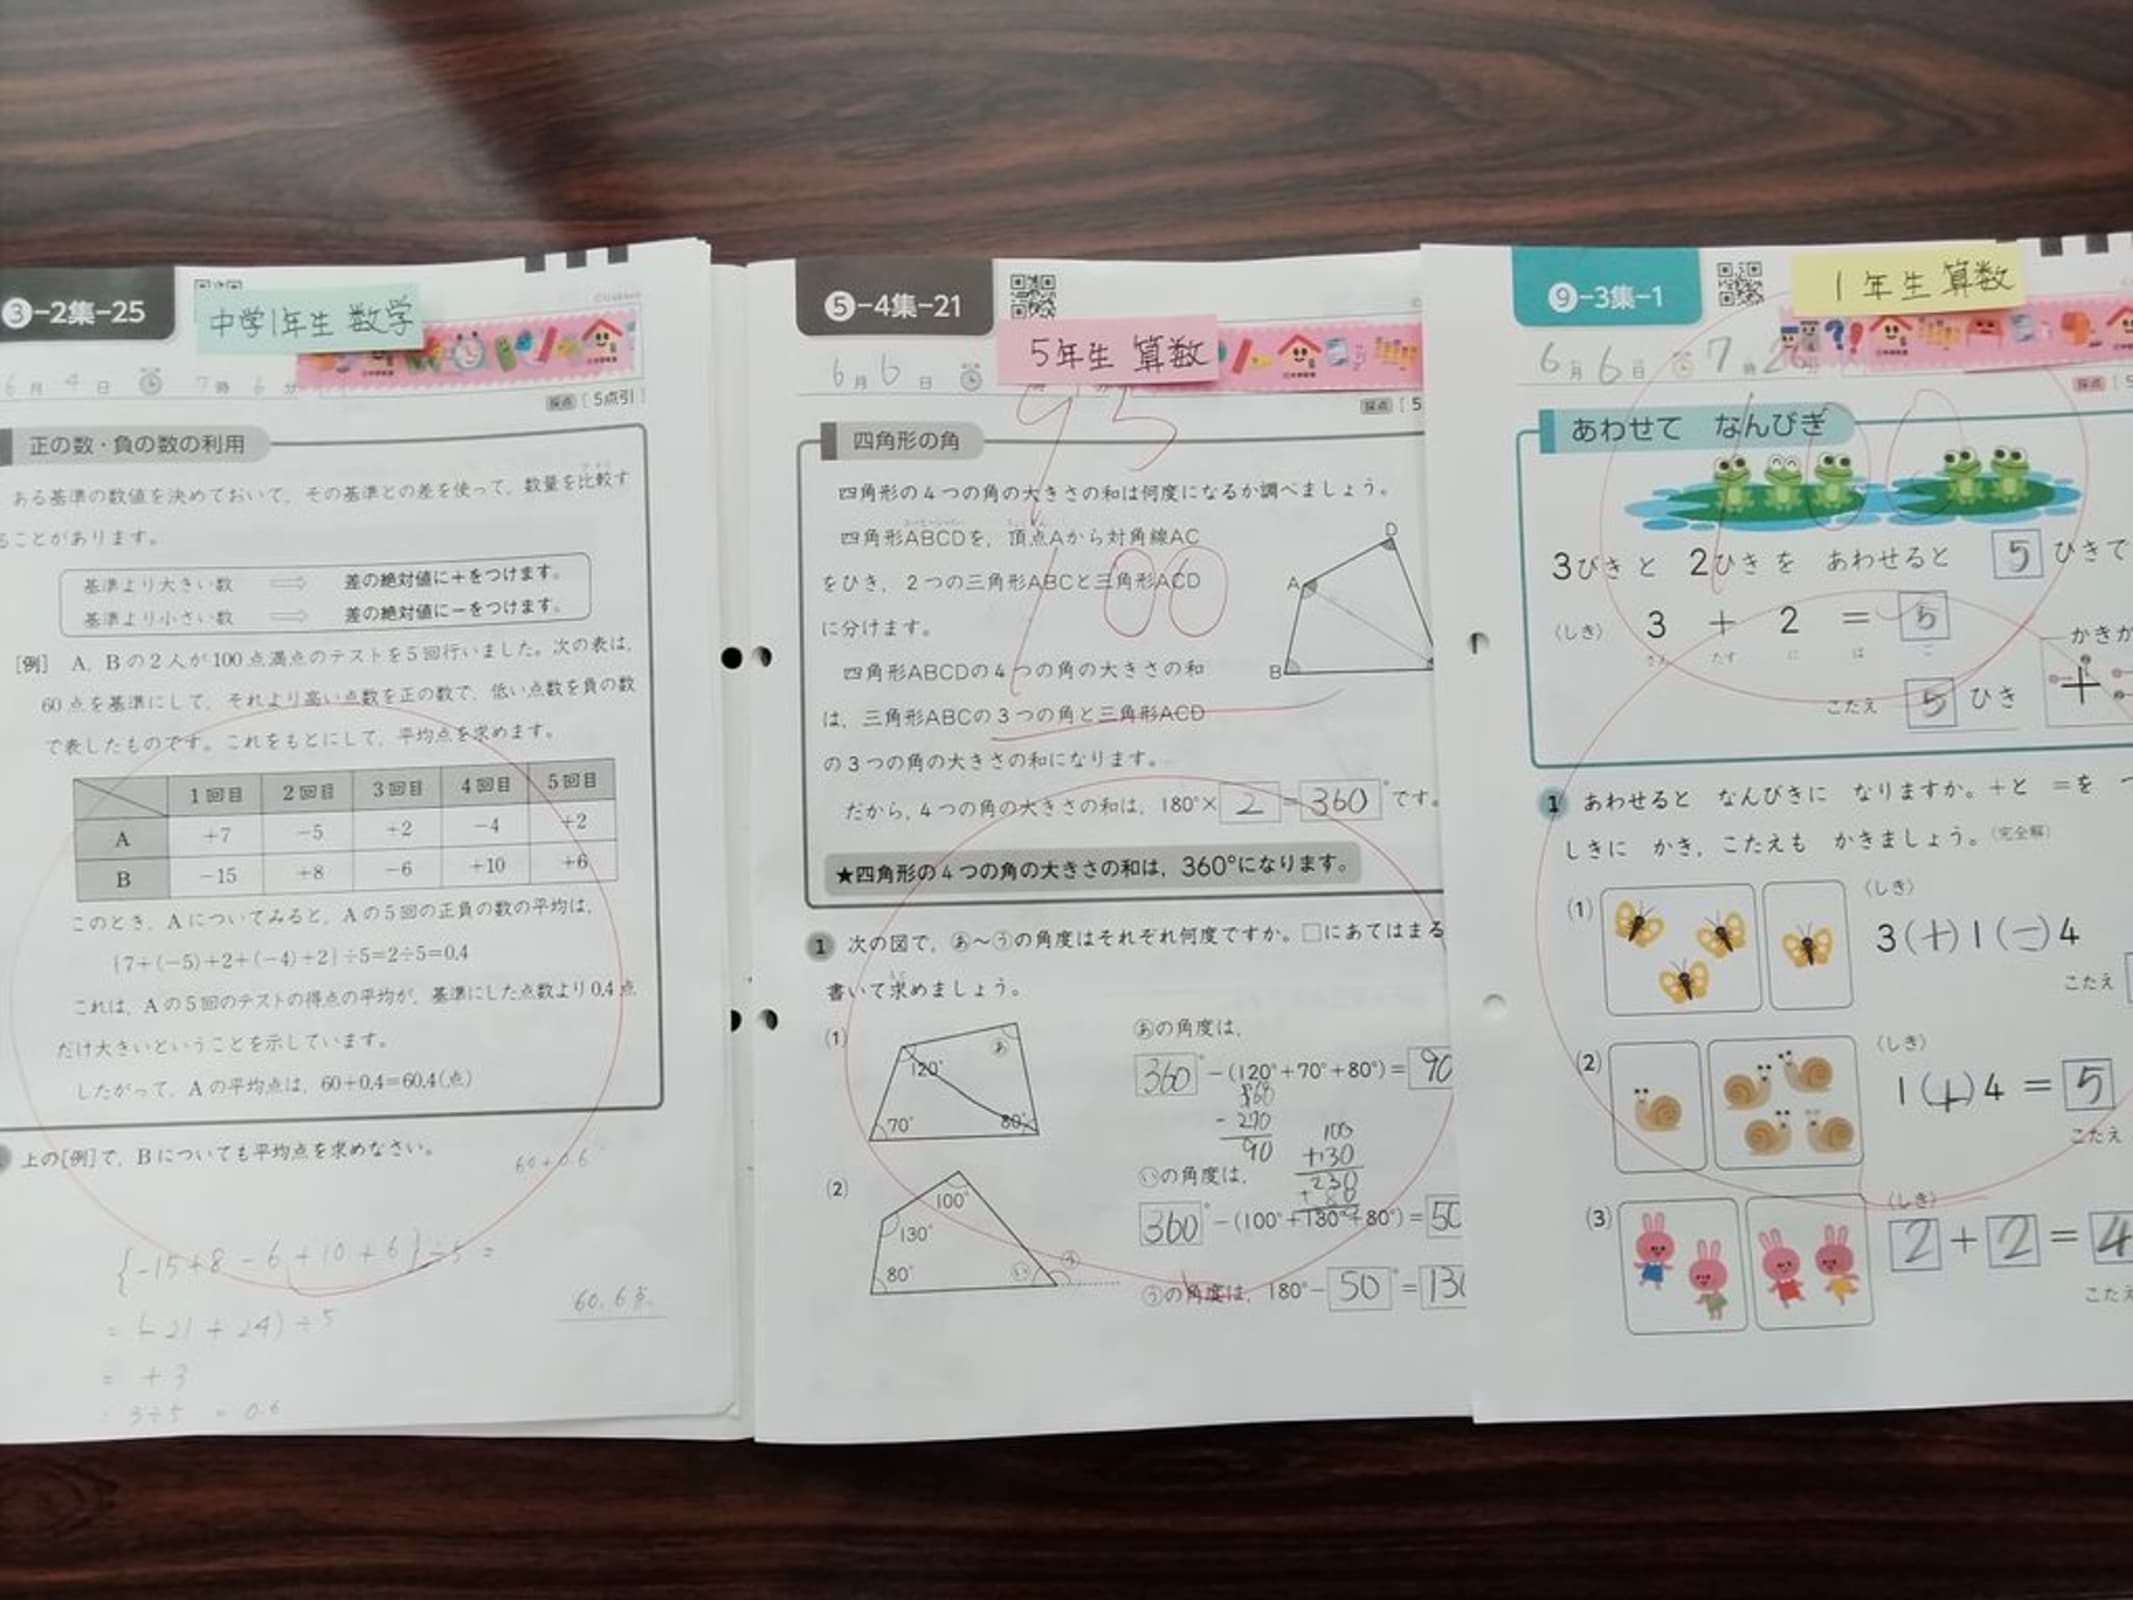 ❸-2集-25
中学1年生 数学
6月4日 7時6分
採点 [5点引]
正の数・負の数の利用
ある基準の数値を決めておいて、その基準との差を使って、数量を比較す
ることがあります。
基準より大きい数 ⇒ 差の絶対値に+をつけます。
基準より小さい数 ⇒ 差の絶対値に−をつけます。
[例] A、Bの2人が100点満点のテストを5回行いました。次の表は、
60点を基準にして、それより高い点数を正の数で、低い点数を負の数
で表したものです。これをもとにして、平均点を求めます。
1回目 2回目 3回目 4回目 5回目
A +7 −5 +2 −4 +2
B −15 +8 −6 +10 +6
このとき、Aについてみると、Aの5回の正負の数の平均は、
{7+(−5)+2+(−4)+2}÷5=2÷5=0.4
これは、Aの5回のテストの得点の平均が、基準にした点数より0.4点
だけ大きいということを示しています。
したがって、Aの平均点は、60+0.4=60.4(点)
上の[例]で、Bについても平均点を求めなさい。
60+0.6
{-15+8-6+10+6}÷5=
=(-21+24)÷5
= +3
3÷5 = 0.6
60.6点
❺-4集-21
5年生 算数
6月6日
採点 [5
95
100
四角形の角
四角形の4つの角の大きさの和は何度になるか調べましょう。
四角形ABCDを、頂点Aから対角線AC
をひき、2つの三角形ABCと三角形ACD
に分けます。
四角形ABCDの4つの角の大きさの和
は、三角形ABCの3つの角と三角形ACD
の3つの角の大きさの和になります。
A
B
D
だから、4つの角の大きさの和は、180°×2=360°です。
★四角形の4つの角の大きさの和は、360°になります。
1 次の図で、あ〜うの角度はそれぞれ何度ですか。□にあてはまる
書いて求めましょう。
(1)
120°
あ
70°
80°
あの角度は、
360°−(120°+70°+80°)=90
360
- 270
90
100
+130
230
+ 80
(2)
100°
130°
80°
い
う
いの角度は、
360°−(100°+130°+80°)=50
うの角度は、180°−50°=13
❾-3集-1
1年生 算数
6月6日 7時26分
採点 [5
100
あわせて なんびき
3びきと 2ひきを あわせると 5ひきで
(しき) 3 + 2 = 5
さん たす に は ご
こたえ 5ひき
かきか
+
1 あわせると なんびきに なりますか。+と =を つ
しきに かき、こたえも かきましょう。(完全解)
(1) (しき)
3(+)1(=)4
こたえ
(2) (しき)
1(+)4 = 5
こたえ
(3) (しき)
2+2=4
こたえ